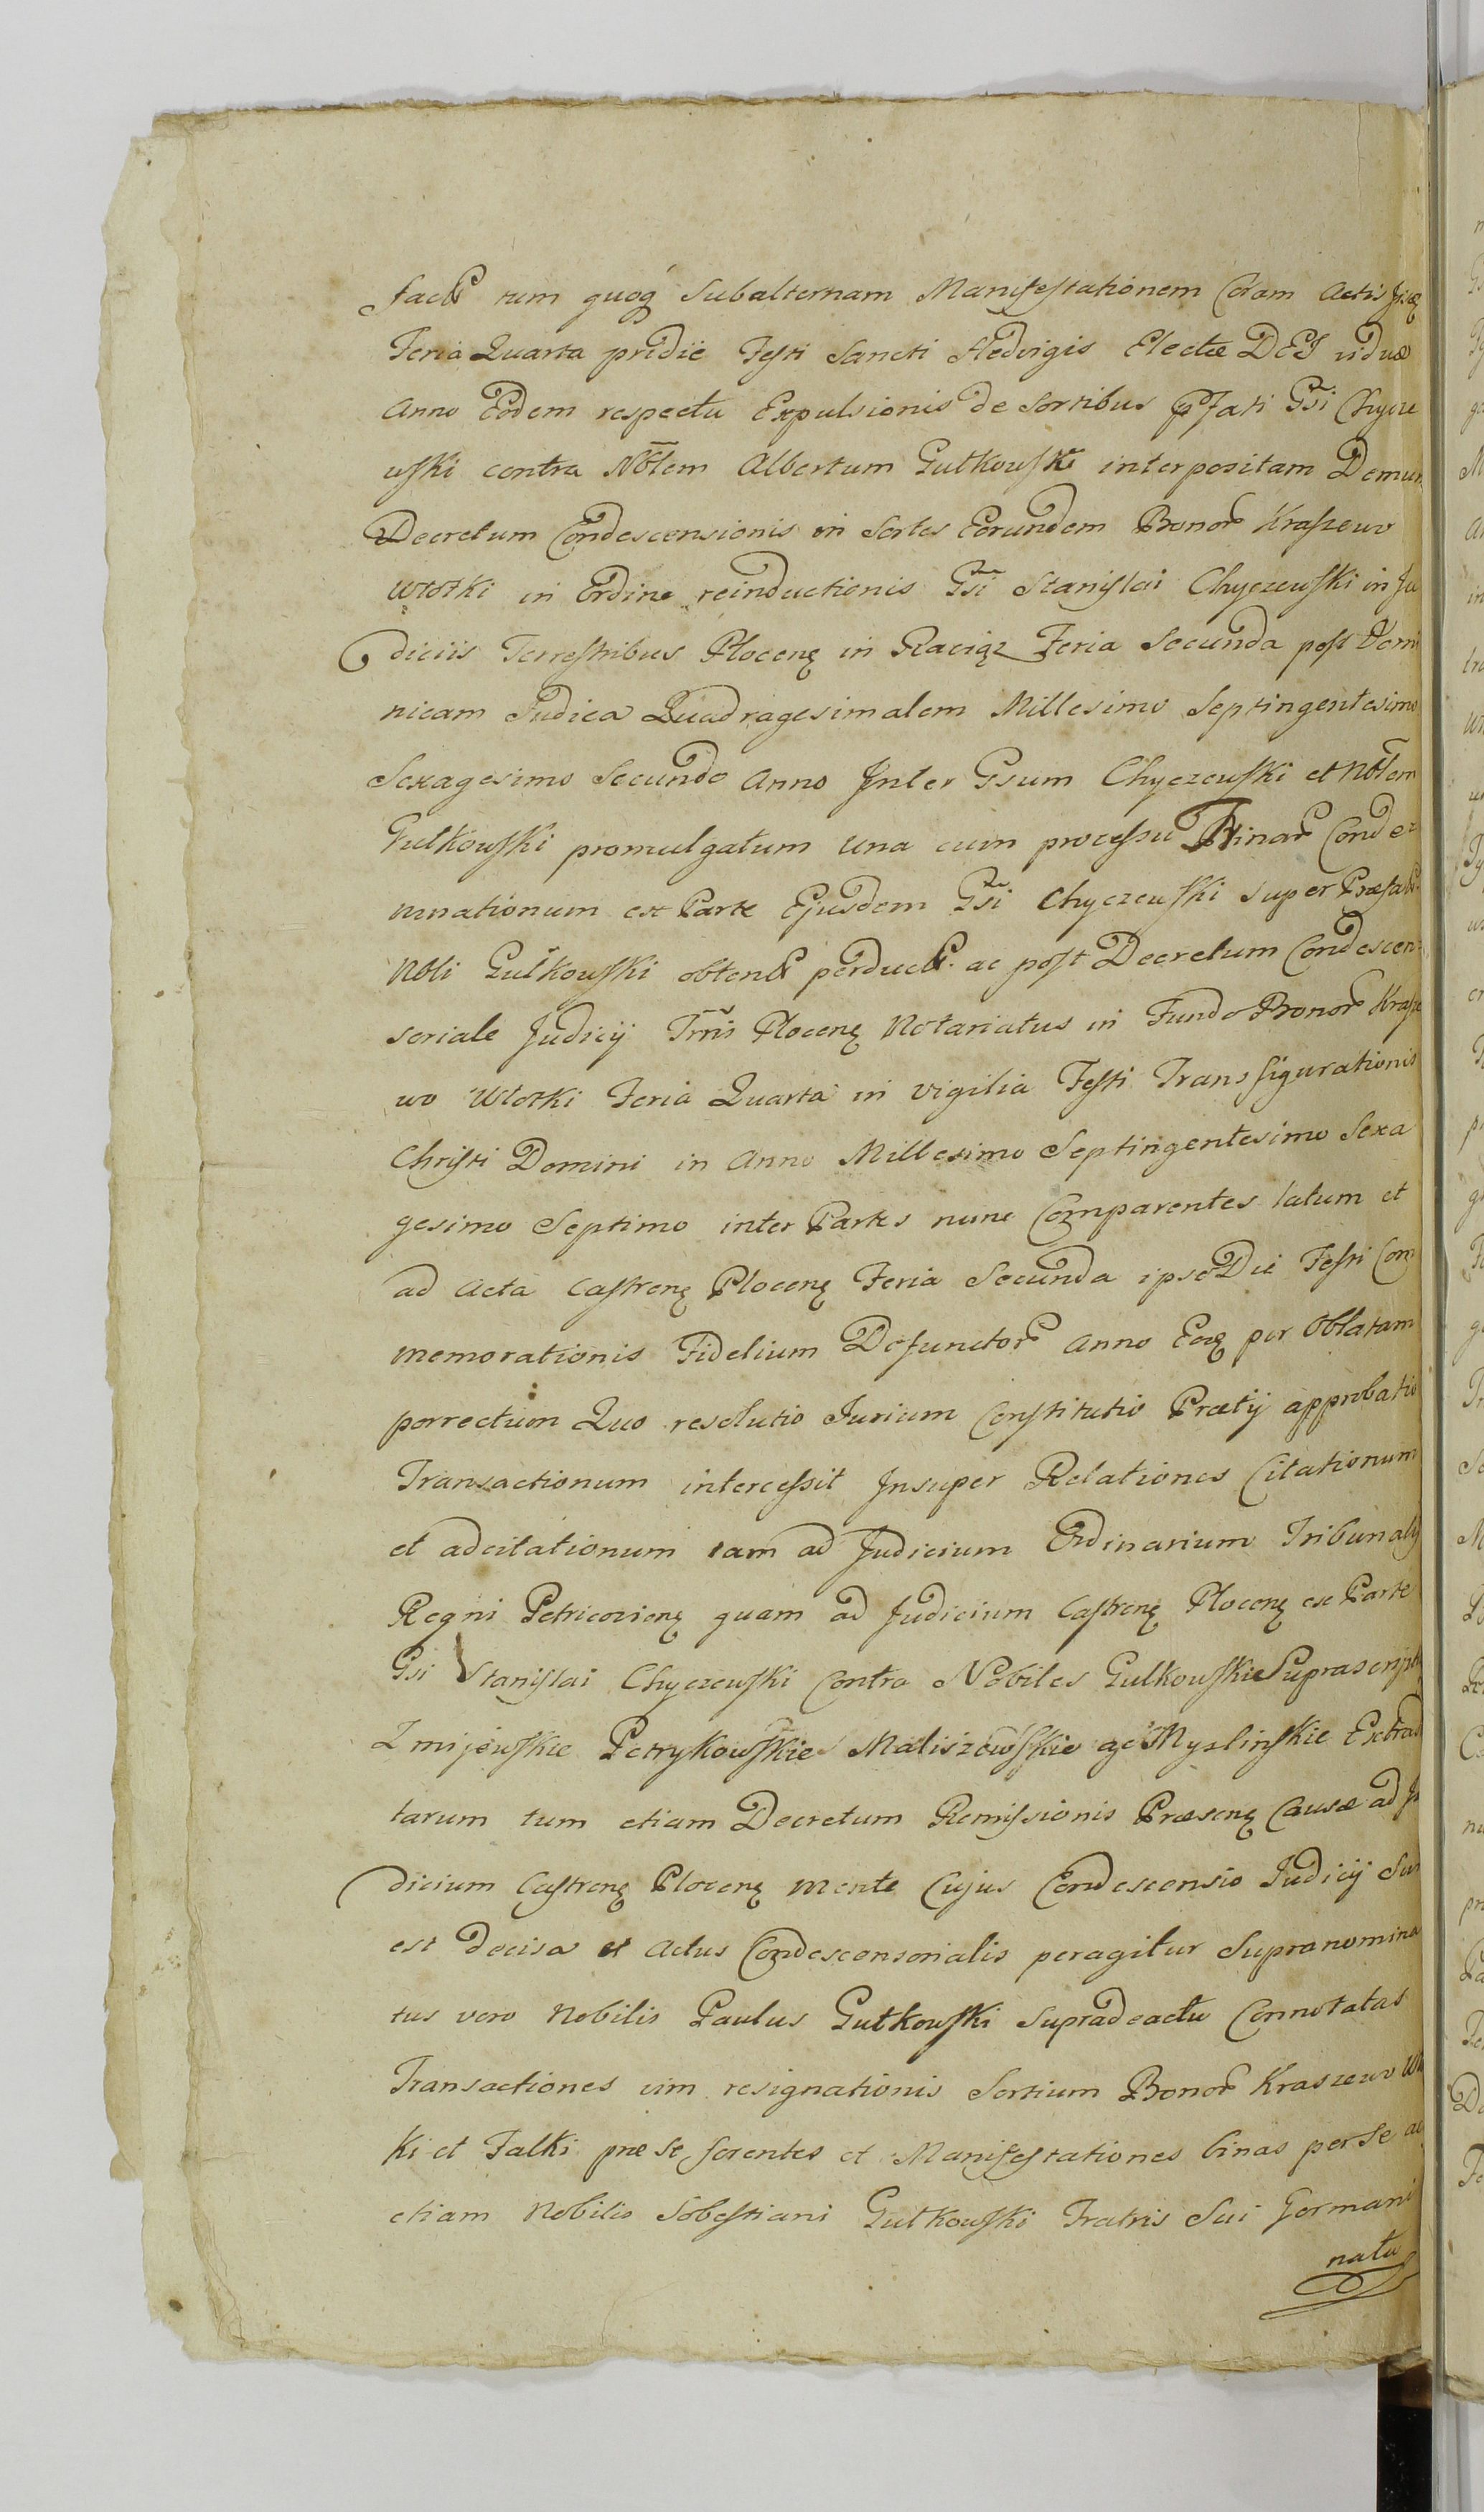 tum quoq Subalternam Manifestationem Coram Actis
Feria Quarta pridie Festi Sancti Hedvigis Electæ DEI viduæ
Anno Eodem respectu Expulsionis de Sortibus pfati Gsi Chycze
wski contra Nblem Albertum Gutkowski interpositam Demum
Decretum Condescensionis in Sortes Eorundem Bonor Kraszewo
Wtorki in Ordine reinductionis Gsi Stanislai Chyczewski in Ju
diciis Terrestribus Plocen in Raciąz Feria Secunda post Domi
nicam Judica Quadragesimalem Millesimo Septingentesimo
Sexagesimo Secundo Anno Inter Gsum Chyczewski et Nblem
Gutkowski promulgatum una cum processu Binar Conde
mnationum ex Parte Ejusdem Gsi Chyczewski super Præfat
Nbli Gutkowski obtent perduct. ac post Decretum Condescen
soriale Judicij Trris Plocen Notariatus in Fundo Bonor Krasze
wo Wtorki Feria Quarta in vigilia Festi Transfigurationis
Christi Domini in Anno Millesimo Septingentesimo Sexa
gesimo Septimo inter Partes nunc Comparentes latum et
ad Acta Castren Plocen Feria Secunda ipso Die Festi Com
memorationis Fidelium Defunctor Anno Eoq per Oblatam
porrectum Quo resolutio Jurium Constitutio Prætij approbatio
Transactionum intercessit Insuper Relationes Citationum
et adcitationum tam ad Judicium Ordinarium Tribunalis
Regni Petricovien quam ad Judicium Castren Plocen ex Parte
Gsi Stanislai Chyczewski Contra Nobiles Gutkowskie Suprascript
Zmijewskie Petrykowskie Maliszewskie ac Myslinskie Extradi
tarum tum etiam Decretum Remissionis Præsen Causæ ad Ju
dicium Castren Plocen mente Cujus Condescensio Judicij Sui
est decisa et Actus Condescensorialis peragitur Supranomina
tus vero Nobilis Paulus Gutkowski supradeactu Connotatas
Transactiones vim resignationis Sortium Bonor Kraszewo
ki et Falki præ se ferentes et Manifestationes binas per se ac
etiam Nobilis Sobestiani Gutkowski Fratris Sui Germani
natu